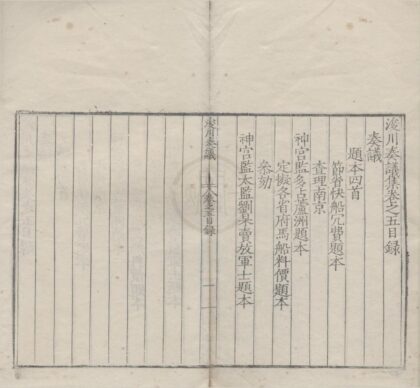 浚川奏議集卷之五目錄
奏議
題本四首
節省快船冗費題本
查理南京
神宮監多占蘆洲題本
定擬各省府馬船料價題本
參劾
神宮監太監劉杲賣放軍士題本
浚川奏議
卷之五目錄
一